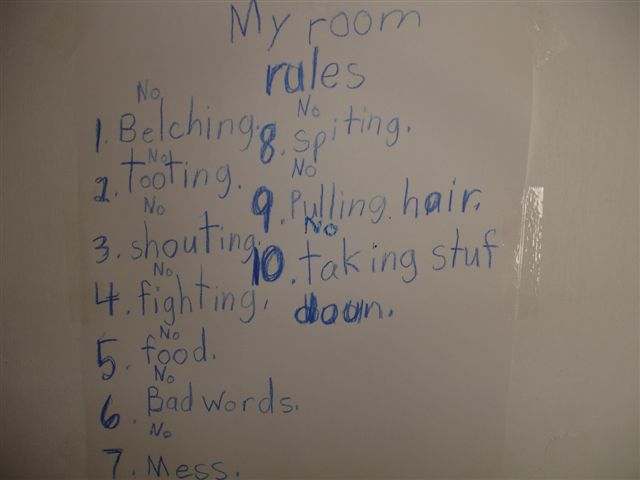 My room
rules
No
1. Belching.
No
2. tooting.
No
3. shouting.
No
4. fighting.
No
5. food.
No
6. Bad words.
No
7. Mess.
No
8. spiting.
No
9. Pulling hair.
No
10. taking stuf
down.